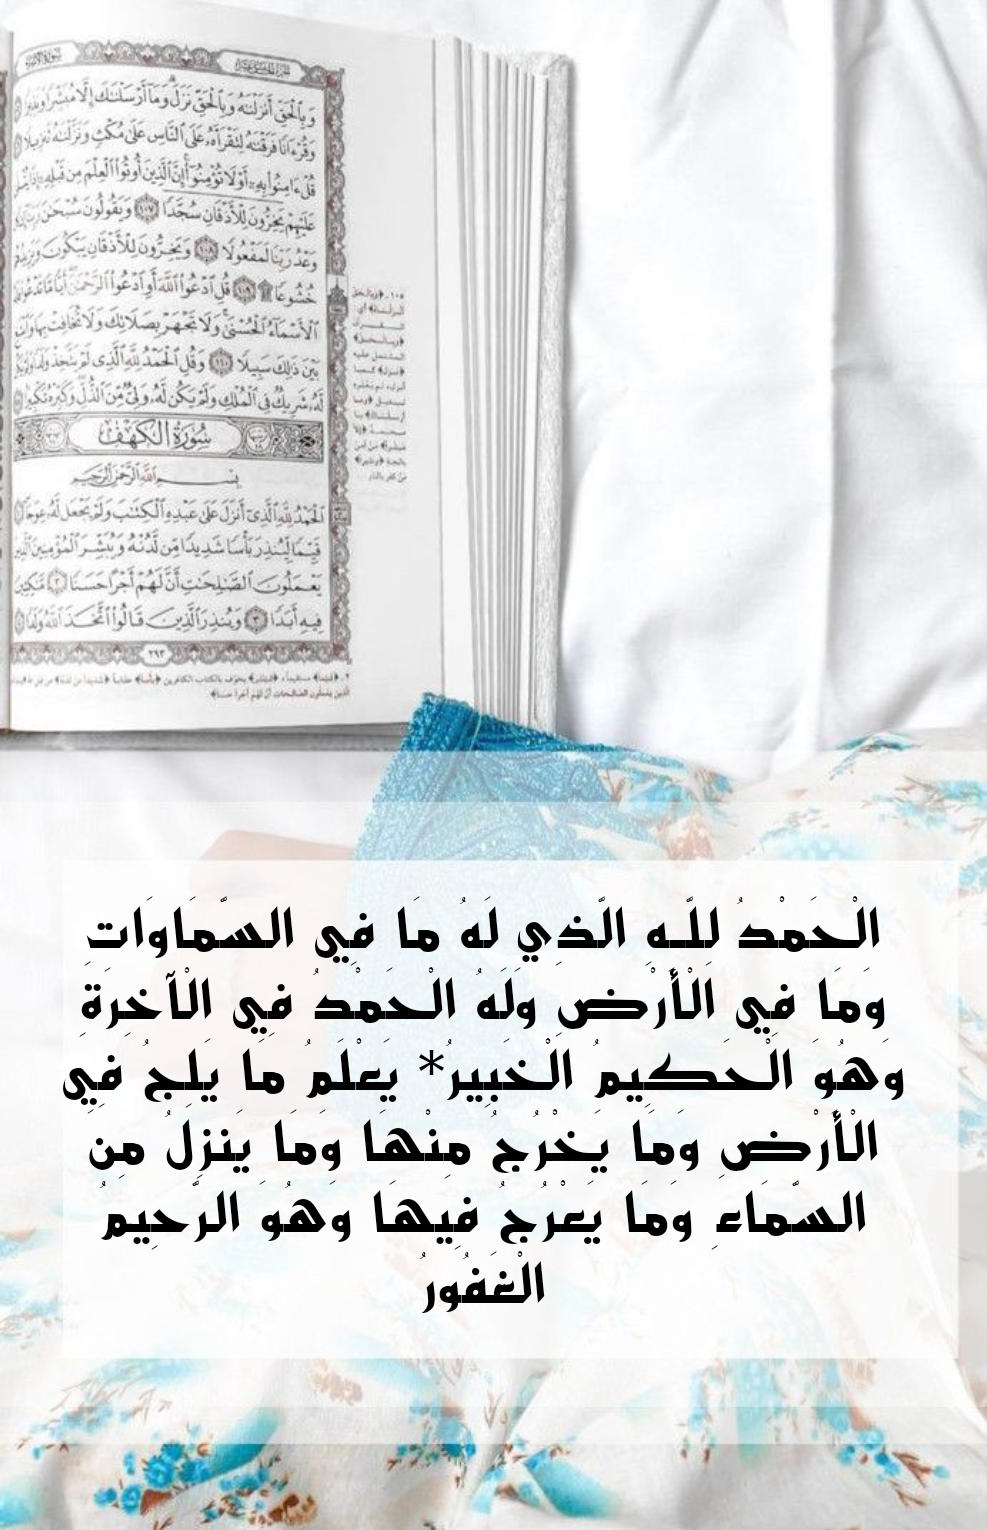 سورة الإسراء
وَبِالْحَقِّ أَنزَلْنَٰهُ وَبِالْحَقِّ نَزَلَ وَمَا أَرْسَلْنَٰكَ إِلَّا مُبَشِّرًا وَنَذِيرًا
وَقُرْءَانًا فَرَقْنَٰهُ لِتَقْرَأَهُ عَلَى النَّاسِ عَلَىٰ مُكْثٍ وَنَزَّلْنَٰهُ تَنزِيلًا
قُلْ ءَامِنُوا بِهِ أَوْ لَا تُؤْمِنُوا إِنَّ الَّذِينَ أُوتُوا الْعِلْمَ مِن قَبْلِهِ إِذَا يُتْلَىٰ
عَلَيْهِمْ يَخِرُّونَ لِلْأَذْقَانِ سُجَّدًا ١٠٧ وَيَقُولُونَ سُبْحَٰنَ رَبِّنَا
وَعْدُ رَبِّنَا لَمَفْعُولًا ١٠٨ وَيَخِرُّونَ لِلْأَذْقَانِ يَبْكُونَ وَيَزِيدُهُمْ
خُشُوعًا ١٠٩ قُلِ ادْعُوا اللَّهَ أَوِ ادْعُوا الرَّحْمَٰنَ أَيًّا مَّا تَدْعُوا
الْأَسْمَاءُ الْحُسْنَىٰ وَلَا تَجْهَرْ بِصَلَاتِكَ وَلَا تُخَافِتْ بِهَا وَابْتَغِ
بَيْنَ ذَٰلِكَ سَبِيلًا ١١٠ وَقُلِ الْحَمْدُ لِلَّهِ الَّذِي لَمْ يَتَّخِذْ وَلَدًا وَلَمْ يَكُن
لَّهُ شَرِيكٌ فِي الْمُلْكِ وَلَمْ يَكُن لَّهُ وَلِيٌّ مِّنَ الذُّلِّ وَكَبِّرْهُ تَكْبِيرًا
سُورَةُ الْكَهْفِ
بِسْمِ اللَّهِ الرَّحْمَٰنِ الرَّحِيمِ
الْحَمْدُ لِلَّهِ الَّذِي أَنزَلَ عَلَىٰ عَبْدِهِ الْكِتَٰبَ وَلَمْ يَجْعَل لَّهُ عِوَجًا
قَيِّمًا لِّيُنذِرَ بَأْسًا شَدِيدًا مِّن لَّدُنْهُ وَيُبَشِّرَ الْمُؤْمِنِينَ الَّذِينَ
يَعْمَلُونَ الصَّٰلِحَٰتِ أَنَّ لَهُمْ أَجْرًا حَسَنًا ٢ مَّٰكِثِينَ
فِيهِ أَبَدًا ٣ وَيُنذِرَ الَّذِينَ قَالُوا اتَّخَذَ اللَّهُ وَلَدًا
٢٩٣
الْحَمْدُ لِلَّـهِ الَّذِي لَهُ مَا فِي السَّمَاوَاتِ
وَمَا فِي الْأَرْضِ وَلَهُ الْحَمْدُ فِي الْآخِرَةِ
وَهُوَ الْحَكِيمُ الْخَبِيرُ* يَعْلَمُ مَا يَلِجُ فِي
الْأَرْضِ وَمَا يَخْرُجُ مِنْهَا وَمَا يَنزِلُ مِنَ
السَّمَاءِ وَمَا يَعْرُجُ فِيهَا وَهُوَ الرَّحِيمُ
الْغَفُورُ